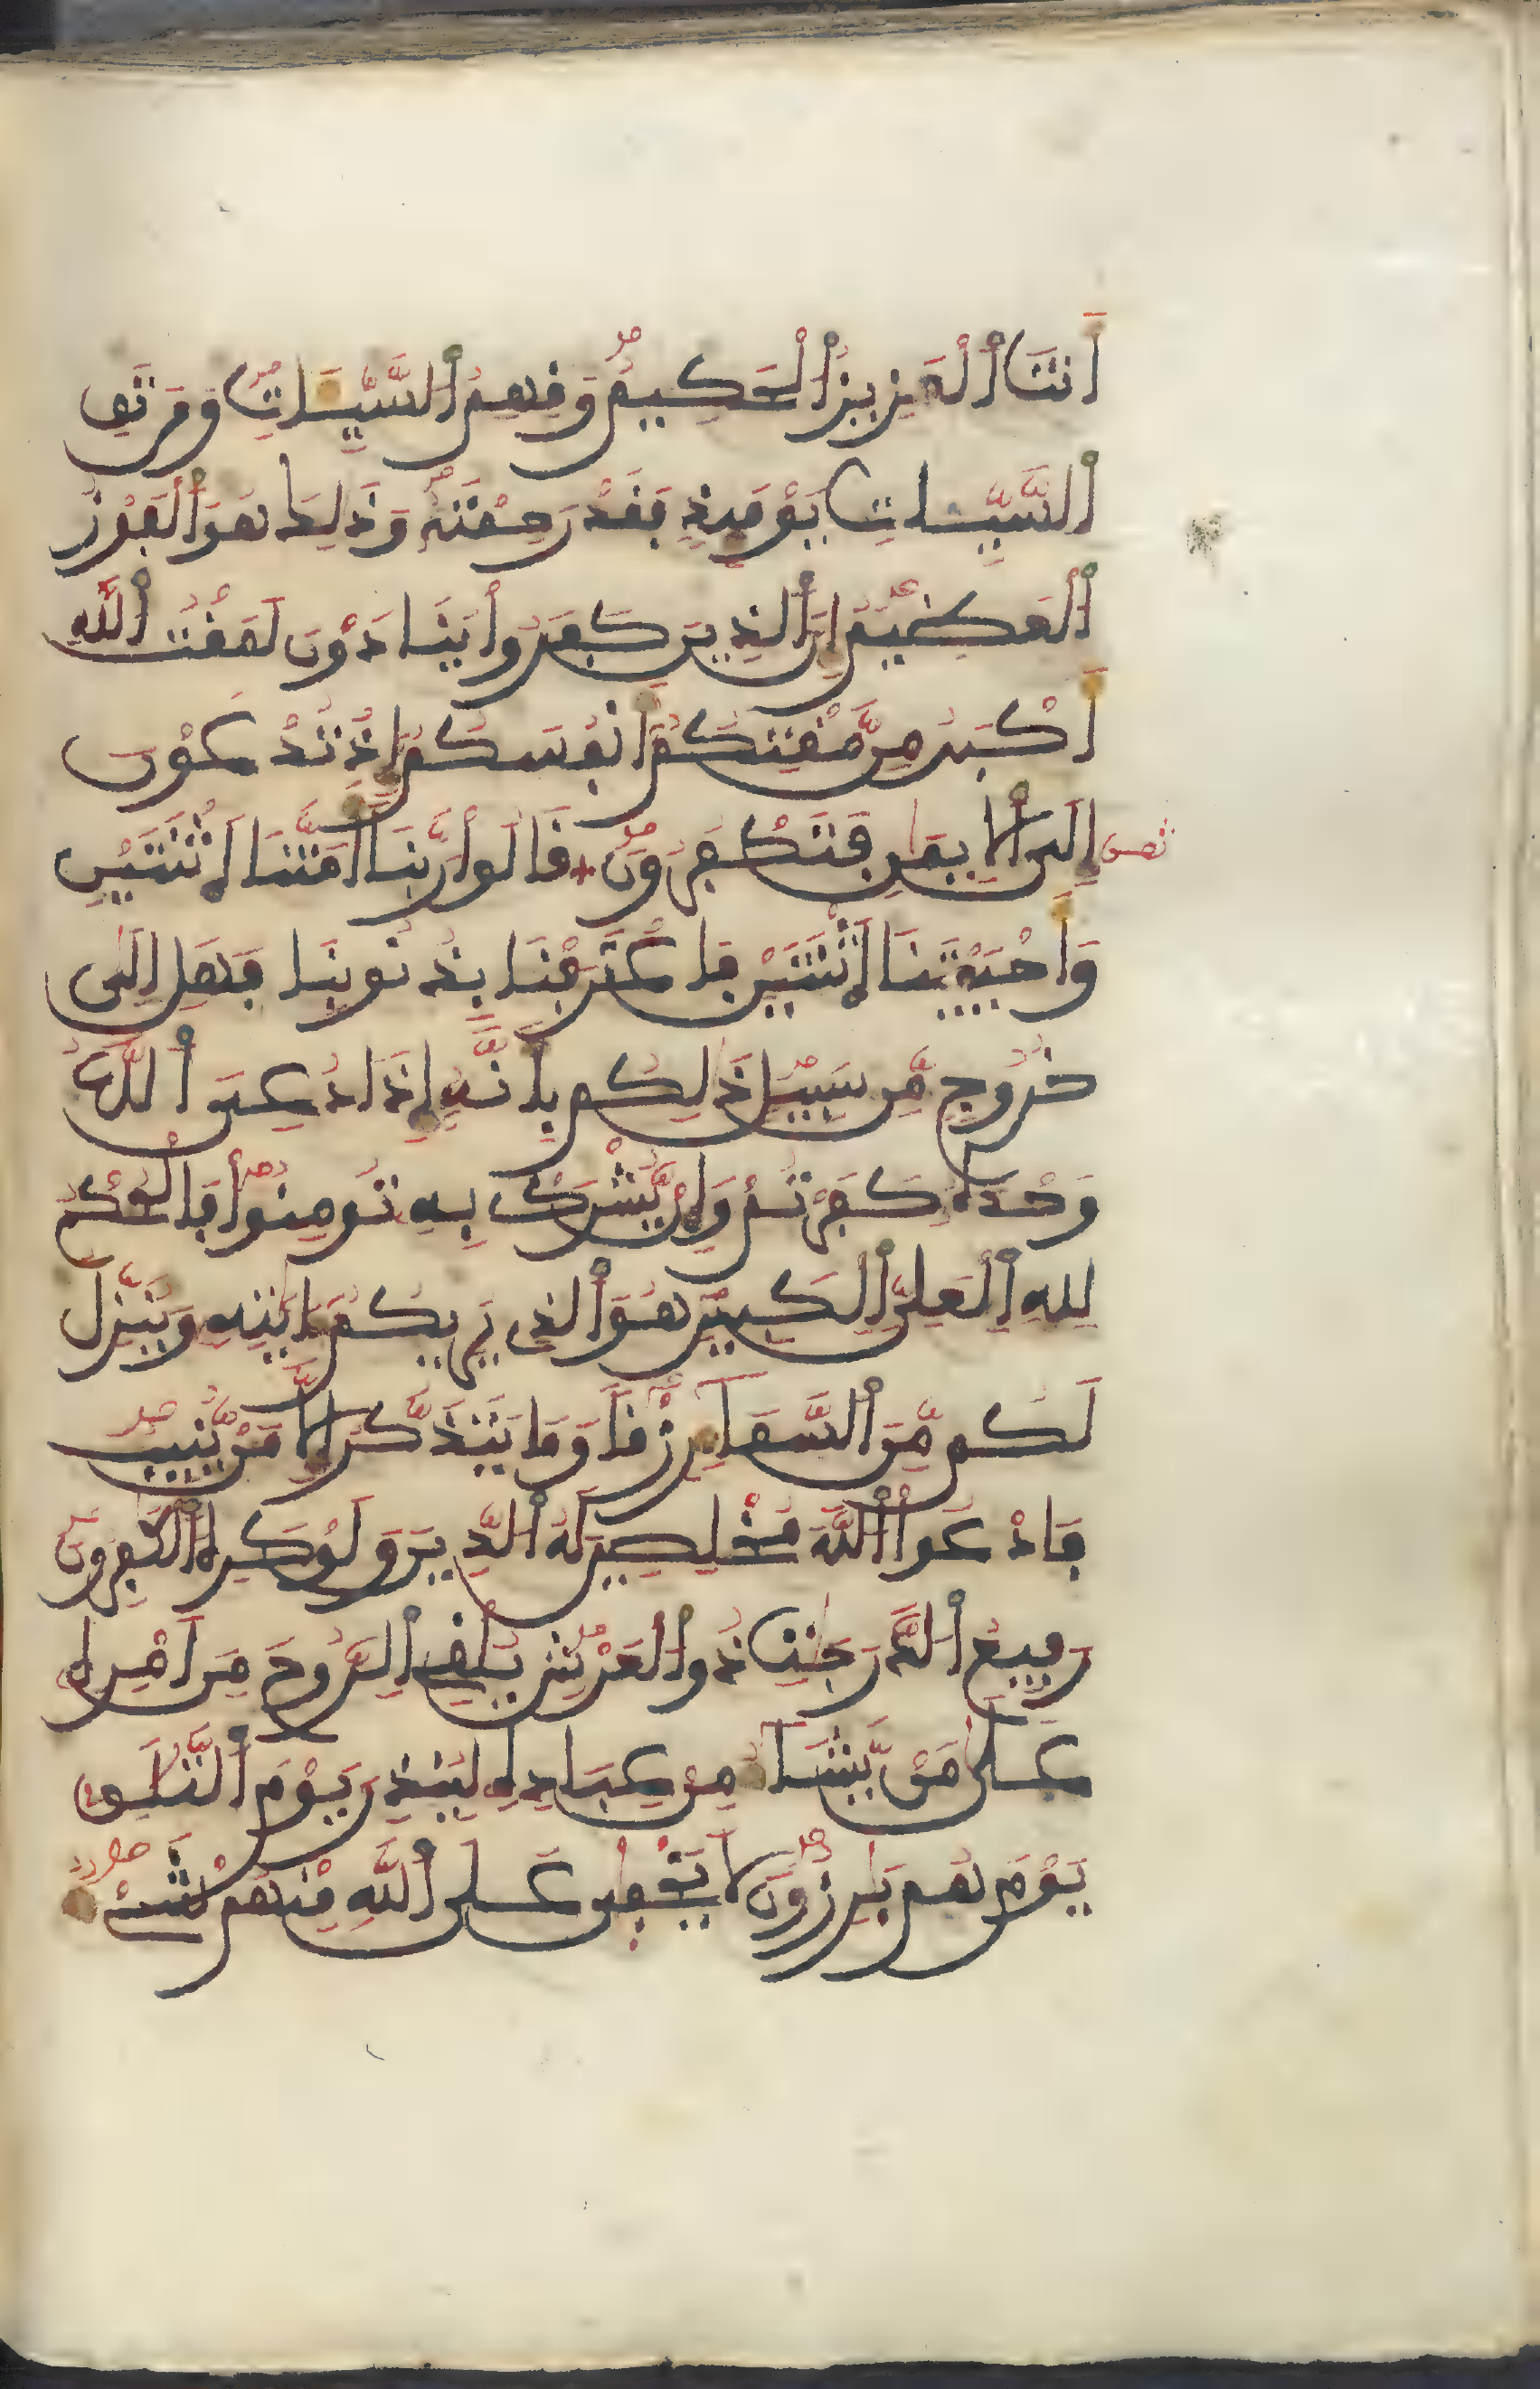 أَنتَ اَ۬لْعَزِيزُ اُ۬لْحَكِيمُ وَقِهِمُ اُ۬لسَّيِّـَٔاتِ وَمَن تَقِ
اِ۬لسَّيِّـَٔاتِ يَوْمَئِذٖ فَقَدْ رَحِمْتَهُۥ وَذَٰلِكَ هُوَ اَ۬لْفَوْزُ
اُ۬لْعَظِيمُ إِنَّ اَ۬لذِينَ كَفَرُواْ يُنَادَوْنَ لَمَقْتُ اُ۬للَّهِ
أَكْبَرُ مِن مَّقْتِكُمُۥٓ أَنفُسَكُمُۥٓ إِذْ تُدْعَوْنَ
إِلَى اَ۬لِايمَٰنِ فَتَكْفُرُونَ قَالُواْ رَبَّنَآ أَمَتَّنَا اَ۪ثْنَتَيْنِ
نصف
وَأَحْيَيْتَنَا اَ۪ثْنَتَيْنِ فَاعْتَرَفْنَا بِذُنُوبِنَا فَهَلِ اِلَىٰ
خُرُوجٖ مِّن سَبِيلٖ ذَٰلِكُم بِأَنَّهُۥٓ إِذَا دُعِيَ اَ۬للَّهُ
وَحْدَهُۥ كَفَرْتُمْ وَإِنْ يُّشْرَكْ بِهِۦ تُومِنُواْ فَالْحُكْمُ
لِلهِ اِ۬لْعَلِيِّ اِ۬لْكَبِيرِ هُوَ اَ۬لذِي يُرِيكُمُۥٓ ءَايَٰتِهِۦ وَيُنَزِّلُ
لَكُم مِّنَ اَ۬لسَّمَآءِ رِزْقاٗ وَمَا يَتَذَكَّرُ إِلَّا مَنْ يُّنِيبُ
فَادْعُواْ اُ۬للَّهَ مُخْلِصِينَ لَهُ اُ۬لدِّينَ وَلَوْ كَرِهَ اَ۬لْكَٰفِرُونَ
رَفِيعُ اُ۬لدَّرَجَٰتِ ذُو اُ۬لْعَرْشِ يُلْقِي اِ۬لرُّوحَ مِنَ اَمْرِهِۦ
عَلَىٰ مَنْ يَّشَآءُ مِنْ عِبَادِهِۦ لِيُنذِرَ يَوْمَ اَ۬لتَّلَٰقِۦ
يَوْمَ هُم بَٰرِزُونَ لَا يَخْفَىٰ عَلَى اَ۬للَّهِ مِنْهُمْ شَےْءٞ